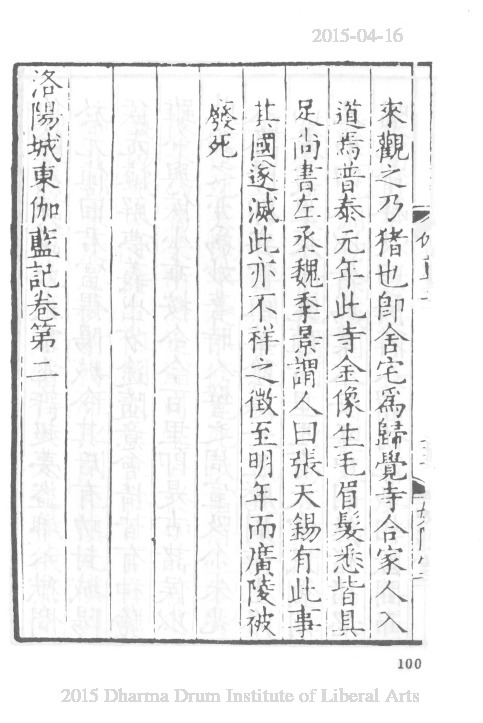 2015-04-16
來觀之乃猪也卽舍宅爲歸覺寺合家人入
道焉普泰元年此寺金像生毛眉髮悉皆具
足尚書左丞魏季景謂人曰張天錫有此事
其國遂滅此亦不祥之徵至明年而廣陵被
廢死
洛陽城東伽藍記卷第二
100
2015 Dharma Drum Institute of Liberal Arts